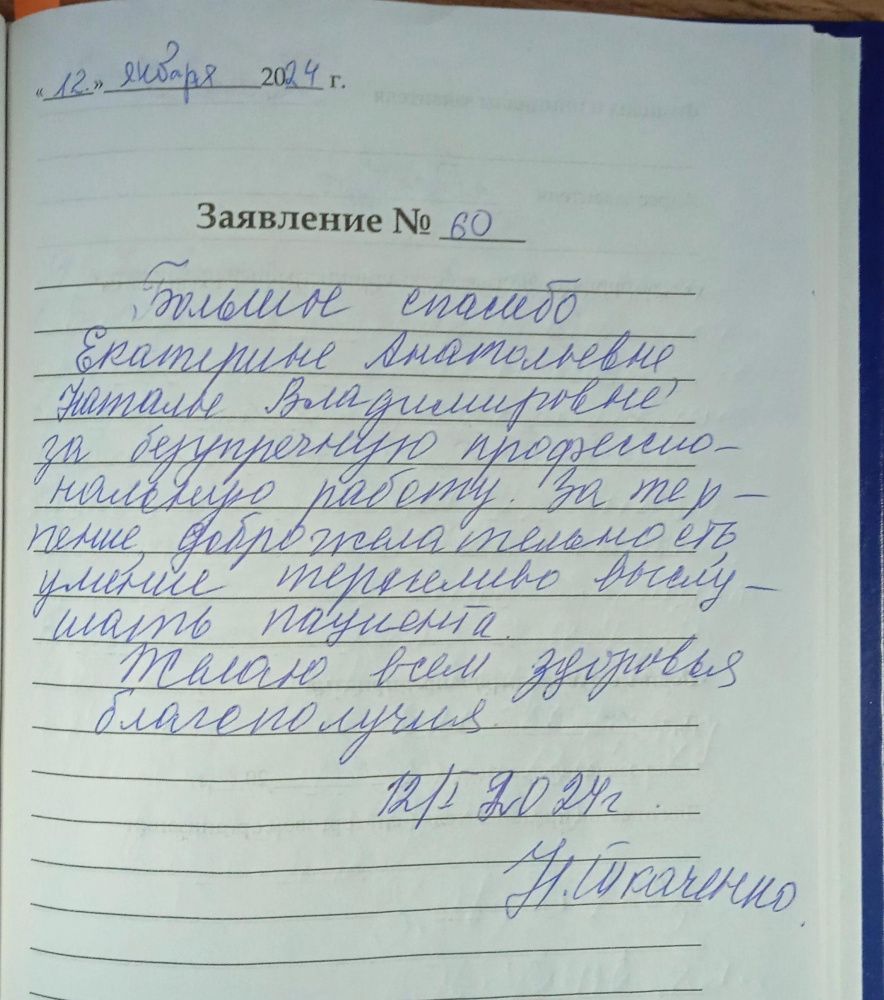 «12.» января 2024 г.
Заявление № 60
Большое спасибо
Екатерине Анатольевне,
Наталье Владимировне,
за безупречную професcио-
нальную работу. За тер-
пение, доброжелательность,
умение терпеливо выслу-
шать пациента.
Желаю всем здоровья
благополучия.
12/I 2024г.
Н. Ткаченко.